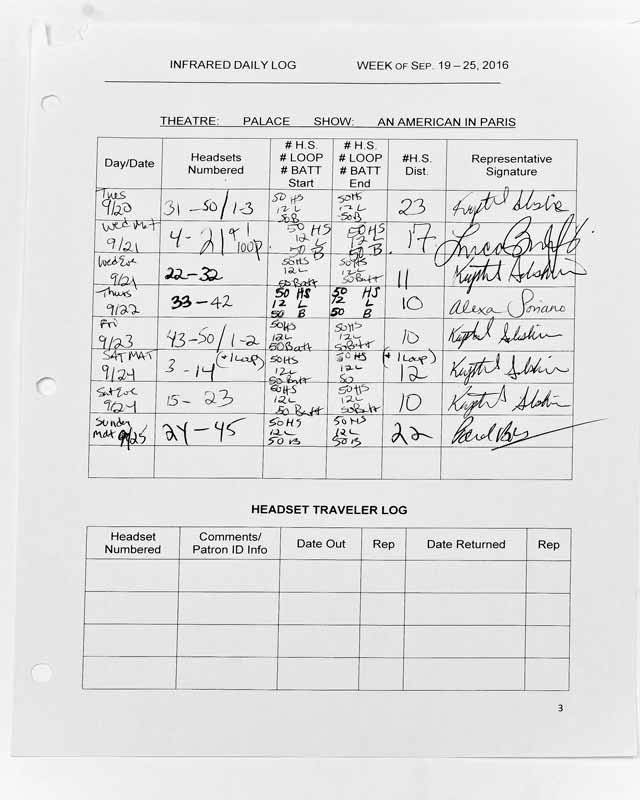 INFRARED DAILY LOG WEEK OF SEP. 19 – 25, 2016
THEATRE: PALACE SHOW: AN AMERICAN IN PARIS
Day/Date Headsets Numbered # H.S. # LOOP # BATT Start # H.S. # LOOP # BATT End #H.S. Dist. Representative Signature
Tues 9/20 31 - 50 / 1-3 50 HS 12 L 50B 50HS 12 L 50B 23
Wed Mat 9/21 4 - 21 + 1 loop 50 HS 12 L 50 B 50HS 12 L 50 B 17
Wed Eve 9/21 22 - 32 50HS 12L 50 Batt 50HS 12L 50 Batt 11
Thurs 9/22 33 - 42 50 HS 12 L 50 B 50 HS 12 L 50 B 10 Alexa Soriano
Fri 9/23 43-50 / 1-2 50HS 12L 50 Batt 50HS 12L 50 Batt 10
SAT MAT 9/24 3 - 14 (+ 1 Loop) 50HS 12L 50 Batt 50 HS 12L 50 (+ 1 Loop) 12
Sat Eve 9/24 15 - 23 50HS 12L 50 Batt 50HS 12L 50 Batt 10
Sunday Mat 9/25 24 - 45 50 HS 12 L 50 B 50 HS 12 L 50 B 22
HEADSET TRAVELER LOG
Headset Numbered Comments/ Patron ID Info Date Out Rep Date Returned Rep
3